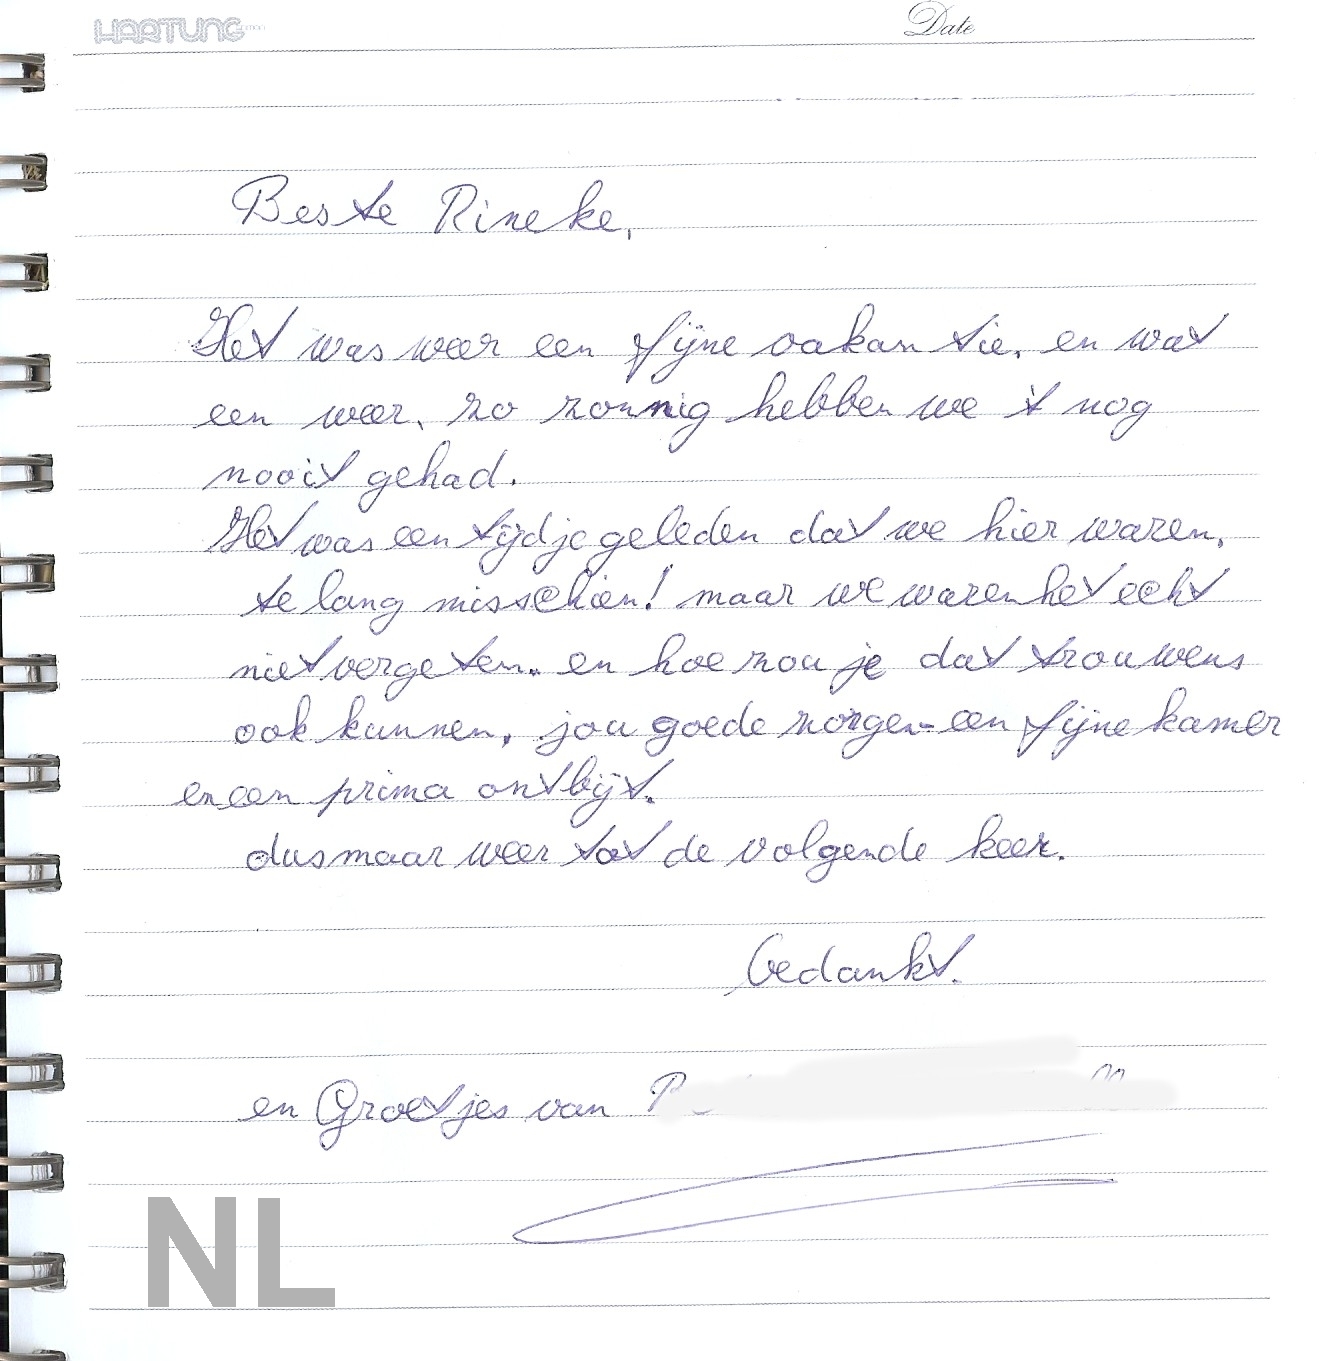 HARTUNG
Date
Beste Rineke,
Het was weer een fijne vakantie, en wat
een weer, zo zonnig hebben we 't nog
nooit gehad.
Het was een tijdje geleden dat we hier waren,
te lang misschien! maar we waren het echt
niet vergeten. en hoe zou je dat trouwens
ook kunnen, jou goede zorgen - een fijne kamer
en een prima ontbijt.
dus maar weer tot de volgende keer.
Gedankt.
en Groetjes van
NL